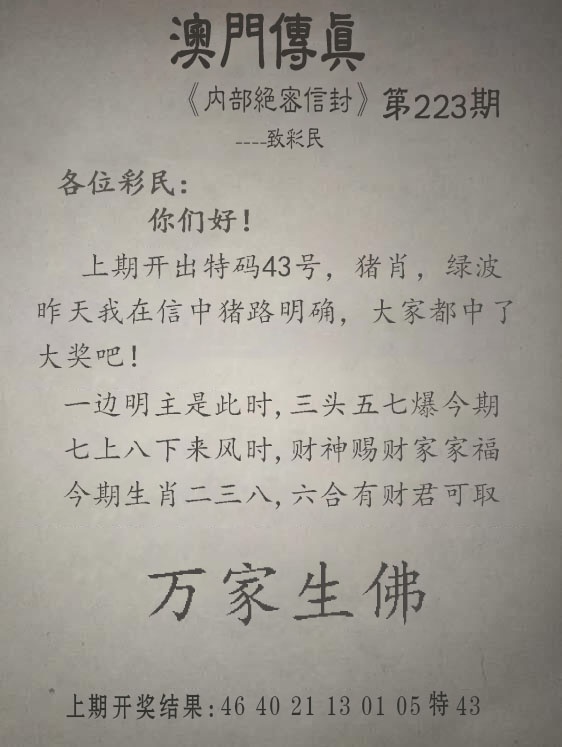 澳門傳眞
《内部絕密信封》第223期
----致彩民
各位彩民:
你们好!
上期开出特码43号，猪肖，绿波
昨天我在信中猪路明确，大家都中了
大奖吧!
一边明主是此时,三头五七爆今期
七上八下来风时,财神赐财家家福
今期生肖二三八,六合有财君可取
万家生佛
上期开奖结果:46 40 21 13 01 05 特 43